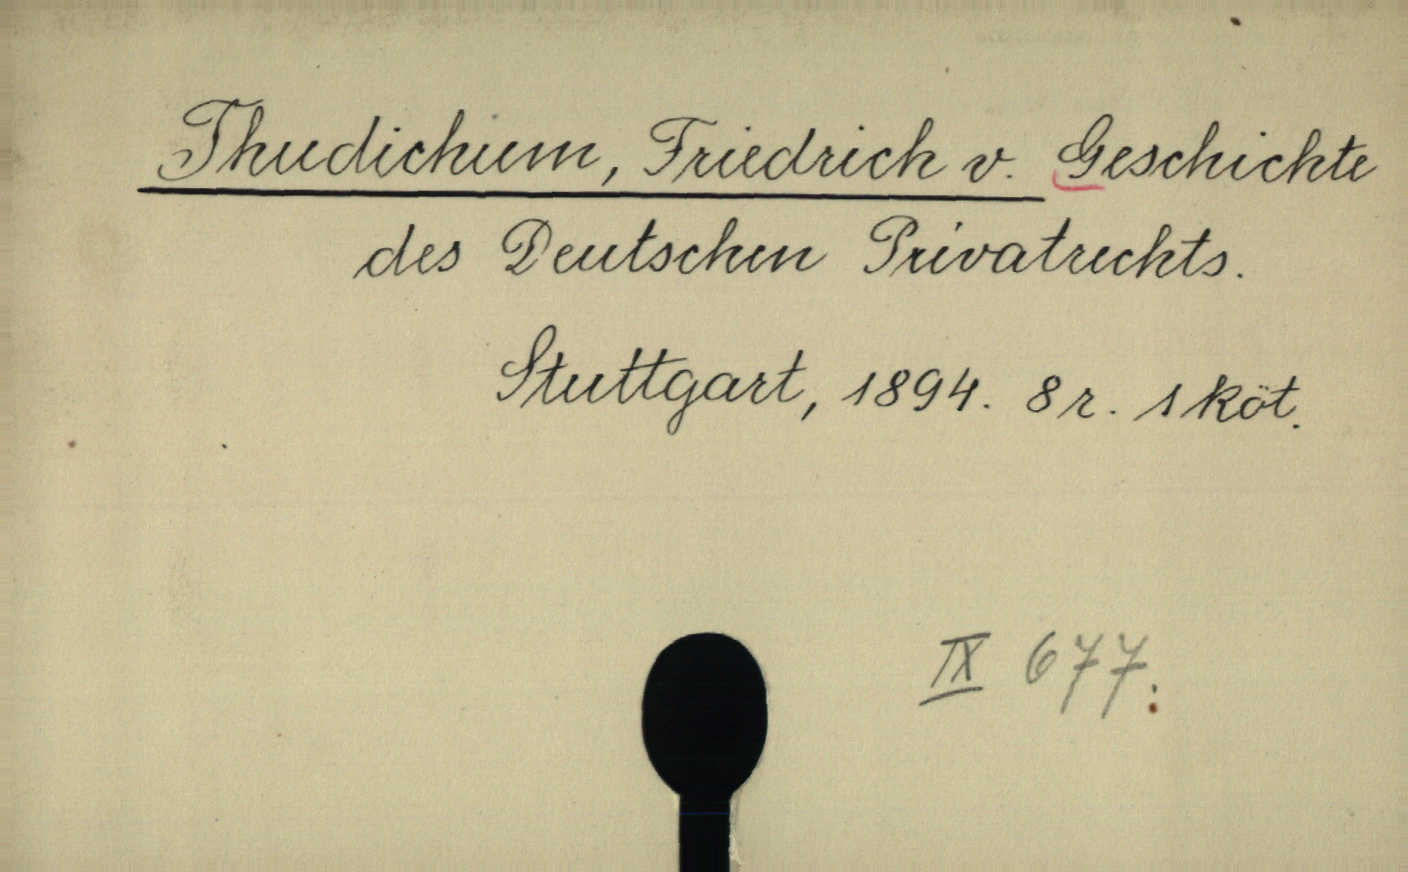 Thudichum, Friedrich v. Geschichte
des Deutschen Privatrechts.
Stuttgart, 1894. 8 r. 1 köt.
IX 677.